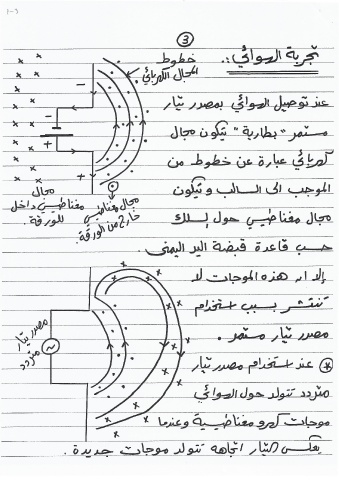 ١-٦
٣
تجربة الهوائي:.
خطوط
المجال الكهربائي
عند توصيل الهوائي بمصدر تيار
مستمر "بطارية" يتكون مجال
كهربائي عبارة عن خطوط من
الموجب الى السالب ويتكون
مجال مغناطيسي حول السلك
حسب قاعدة قبضة اليد اليمنى.
مجال
مغناطيسي داخل
للورقة.
مجال مغناطيسي
خارج من الورقة.
إلا أن هذه الموجات لا
تنتشر بسبب استخدام
مصدر تيار مستمر.
مصدر تيار
متردد
* عند استخدام مصدر تيار
متردد تتولد حول الهوائي
موجات كهرومغناطيسية وعندما
يعكس التيار اتجاهه تتولد موجات جديدة.